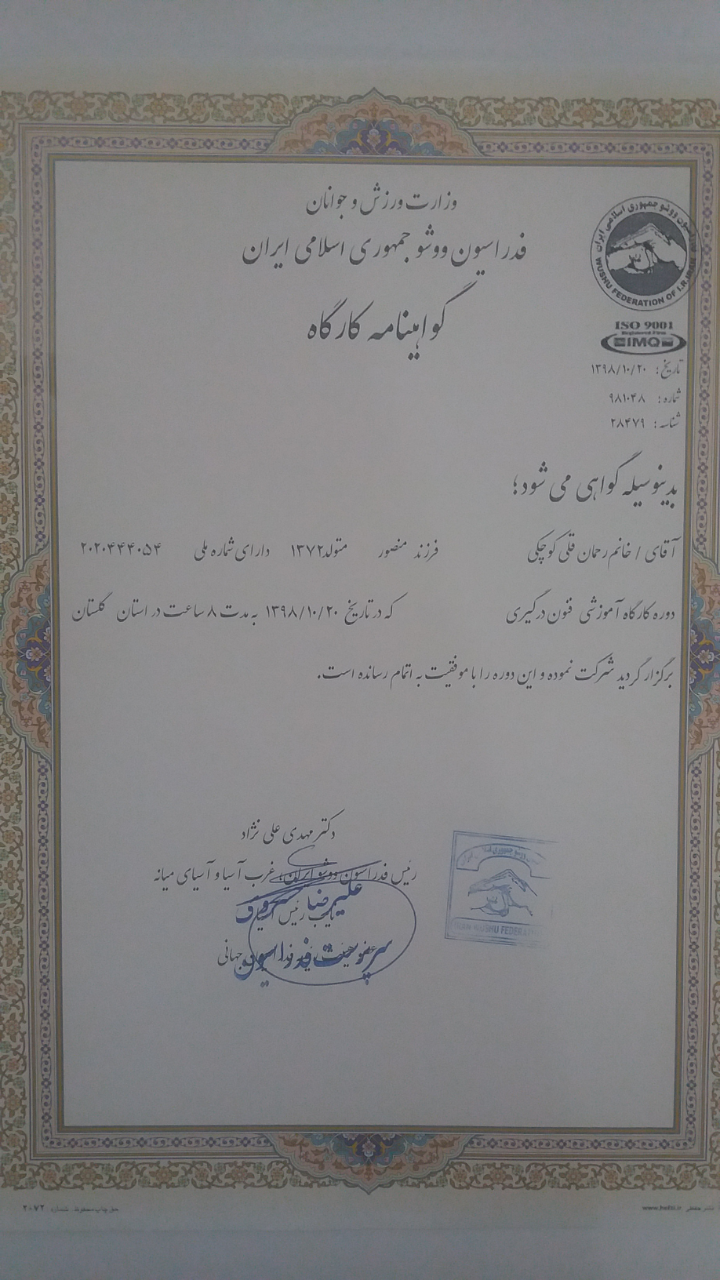 وزارت ورزش و جوانان
فدراسیون ووشو جمهوری اسلامی ایران
گواهینامه کارگاه
فدراسیون ووشو جمهوری اسلامی ایران
WUSHU FEDERATION OF I.R.IRAN
ISO 9001
Registered Firm
IMQ
تاریخ: ۱۳۹۸/۱۰/۲۰
شماره: ۹۸۱۰۴۸
شناسه: ۲۸۴۷۹
بدینوسیله گواهی می شود؛
آقای / خانم رحمان قلی کوچکی فرزند منصور متولد ۱۳۷۲ دارای شماره ملی ۲۰۲۰۴۴۴۰۵۴
دوره کارگاه آموزشی فنون درگیری که در تاریخ ۱۳۹۸/۱۰/۲۰ به مدت ۸ ساعت در استان گلستان
برگزار گردید شرکت نموده و این دوره را با موفقیت به اتمام رسانده است.
دکتر مهدی علی نژاد
رئیس فدراسیون ووشو ایران، غرب آسیا و آسیای میانه
علیرضا
نایب رئیس
سرپرست فدراسیون
جهانی
WUSHU FEDERATION
حق چاپ محفوظ. شماره ۲۰۷۲